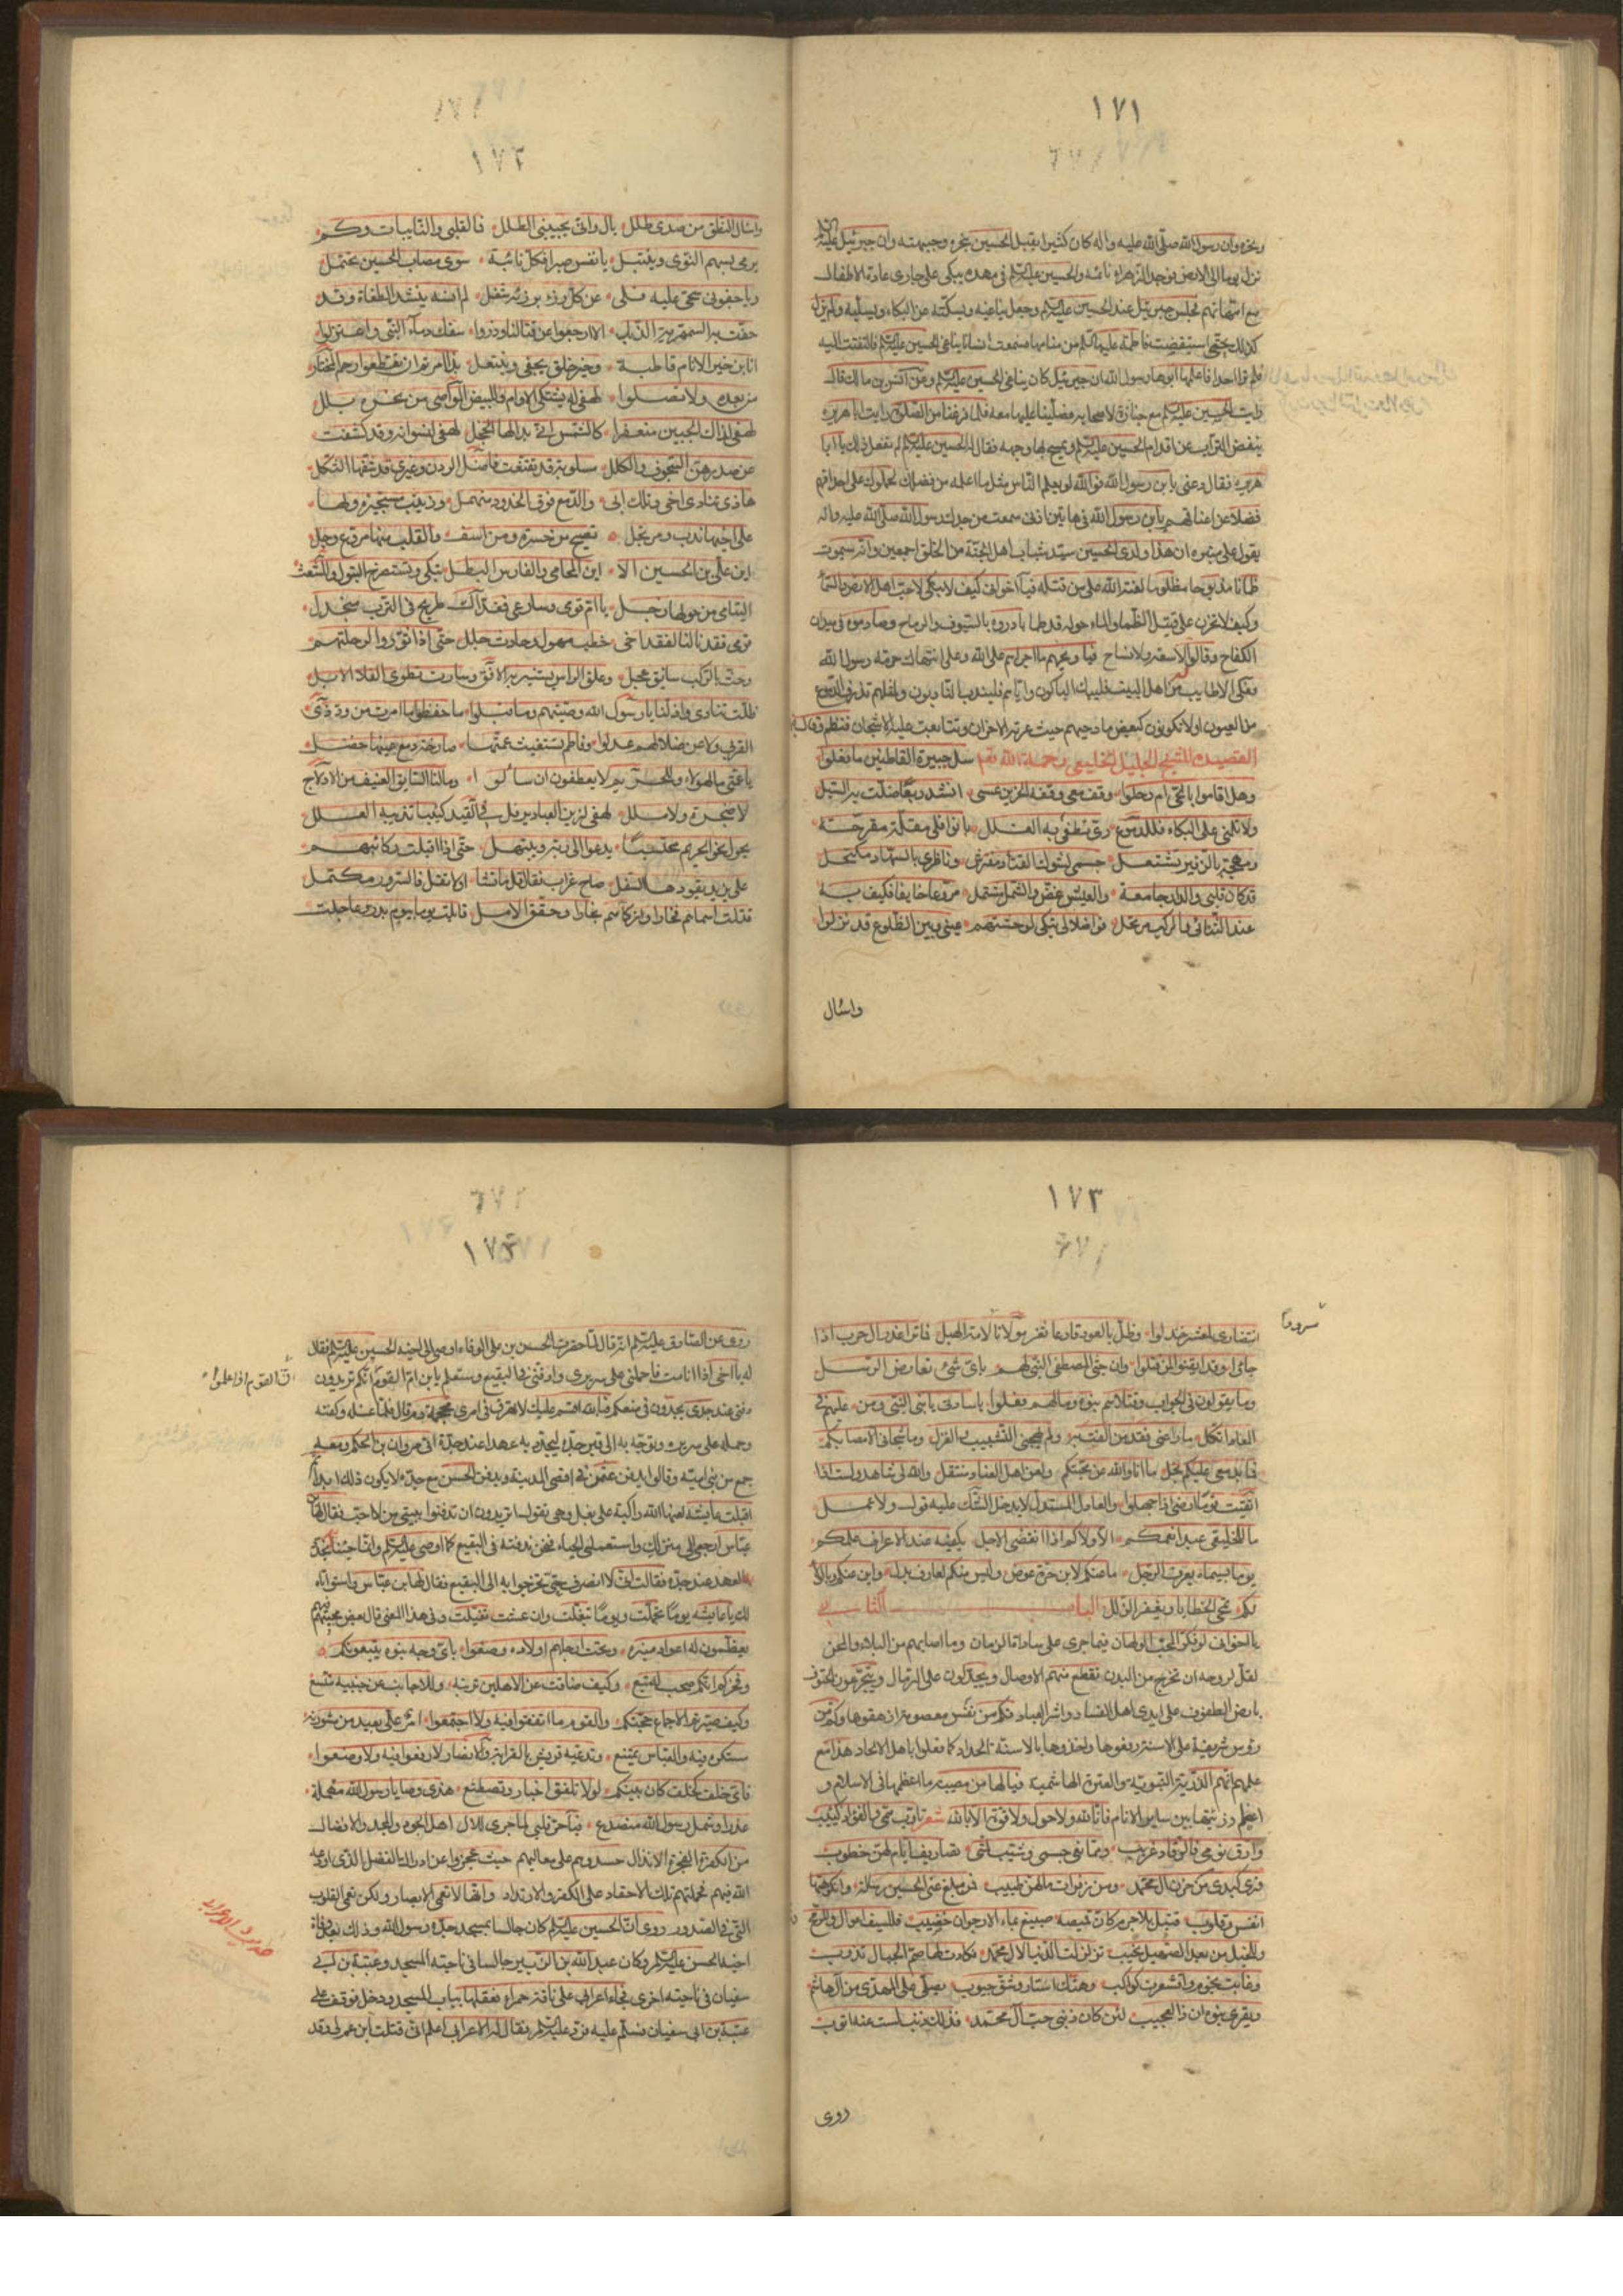 ١٧١
ونحره وان رسول الله صلى الله عليه واله كان كثيرا يقبل الحسين بنحره وجبهته وان جبرئيل عليه السلام
نزل يوما الى الارض فوجد الزهراء نائمة والحسين عليه السلام في مهده يبكي على جاري عادة الاطفال
مع امهاتهم فجلس جبرئيل عند الحسين عليه السلام وجعل يناغيه ويسكته عن البكاء ويسليه ولم يزل
كذلك حتى استيقضت فاطمة عليها السلام من منامها فسمعت انسانا يناغي الحسين عليه السلام فالتفتت اليه
فلم تر احدا فاعلمها ابوها رسول الله ان جبرئيل كان يناغي الحسين عليه السلام وعن انس بن مالك قال
رايت الحسين عليه السلام مع جنازة لاصحابه فصلينا عليها معه فلما فرغنا من الصلوة رايت ابا هريرة
ينفض التراب عن اقدام الحسين عليه السلام ويمسح بها وجهه فقال له الحسين عليه السلام لم تفعل ذلك يا ابا
هريرة فقال دعني يا بن رسول الله فوالله لو يعلم الناس مثل ما اعلمه من فضلك لحملوك على احداقهم
فضلا عن اعناقهم يا بن رسول الله في هاتين اذني سمعت من جدك رسول الله صلى الله عليه واله
يقول على منبره ان هذا ولدي الحسين سيد شباب اهل الجنة من الخلق اجمعين وانه سيموت
ظمآنا مذبوحا مظلوما لعنة الله على من قتله فيا اخواني كيف لا يبكى لاحب اهل الارض والسما
وكيف لا تحزن على قتيل الظما والماء حوله قد طما بادروه بالسيوف والرماح وصادموه في ميدان
الكفاح وقالوا لا سعة ولا انساح فيا ويحهم ما اجراهم على الله وعلى انتهاك حرمة رسول الله
فعلى الاطايب من اهل البيت فليبك الباكون واياهم فليندب النادبون ولمثلهم تذرف الدموع
من العيون اولا تكونون كبعض مادحيهم حيث عرته الاحزان وتتابعت عليه الاشجان فنظم وقال
القصيدة للشيخ الجليل الخليعي رحمة الله نعم سل جيرة القاطنين ما فعلوا
وهل اقاموا بالحي ام رحلوا وقف معي وقفة الحزين عسى انشد ربعا ضلت به السبل
ولا تلمني على البكاء فللدموع ري تطفى به الغلل يا نوا فلي مقلة مقرحة
ومهجة بالزفير تشتعل جسمي لشوك القتاد مفترش وناظري بالسهاد مكتحل
قد كان قلبي والدار جامعة والعيش غض والشمل مشتمل مروعا خايفا فكيف به
عند التنائي والركب مرتحل نواضلا لي تبكي لوحشتهم عيني وبين الظلوع قد نزلوا
واسئال
١٧٢
واسئال النطق من صدى طلل بال وانى يجيبني الطلل فالقلبي والنايبات وكم
يرمى بسهم النوى وينتبل يا نفس صبرا فكل نائبة سوى مصاب الحسين تحتمل
ويا جفوني سحي عليه فلي عن كل رزء برزئه شغل لم انسه ينشد الطغاة وقد
حفت به السمهرية الذبل الا ارجعوا عن قتالنا وذروا سفك دماء النبي واعتزلوا
انا ابن خير الانام قاطبة وخير خلق يحفى وينتعل بذا امرتم ان تقطعوا رحم المختار
من بعده ولا تصلوا لهفي له يشتكي الاوام وللبيض المواضي من نحره بلل
لهفي لذاك الجبين منعفرا كالشمس اذ بدا لها الخجل لهفي لنسوانه وقد كشفت
هاذي تنادي اخي وتلك ابي والدمع فوق الخدود منهمل وزينب مستجيرة ولها
على اخيها ندب ومرتجل تصيح من حسرة ومن اسف والقلب منها مروع وجل
اين علي بن الحسين الا اين المحامي والفارس البطل تبكي وتستصرخ البتول وللشعث
اليتامى من حولها زجل يا ام قومي وسارعي فقد آك طريح في الترب منجدل
ترى فقدنا لنا لفقد اخي خطب مهول وحادث جلل حتى اذا قوروا لرحلتهم
وحث بالركب سايق عجل وعلق الراس يستنير به الافق وسارت تطوي الفلا الابل
ظلت تنادي واذلنا يا رسول الله وصيتهم وما قبلوا ما حفظوا ما امرت من ود ذي
القربى ولا عن ضلالهم عدلوا وفاطم تستغيث عمتها صارخة دمع عينها خضل
يا عمتي ما لهؤلاء وللحسين لا يعطفون ان سألوا وما لنا السايق العنيف من الادلاج
لا ضجرة ولا ملل لهفي لزين العباد يرفل في القيد كئيبا تذيبه العلل
يجوا نحو الحريم محتسبا يدعو الى ربه ويبتهل حتى اذا اقبلت ركائبهم
على يزيد يقودها السفل صاح غراب فقال قل ما تشا اولا تقل فالسرور مكتمل
قتلت اسمام فخارا وازكاهم نجارا وحقق الامل فاليت يوما بيوم بدر وعاجلت
١٧٣
سرورها
انتصاري اعشر خذلوا وظل بالعود قارعا ثغر مولانا لامة الهبل فاتراعذر ال حرب اذا
جاءوا وقد ايقنوا لمن قتلوا وان جثى المصطفى النبي لهم باي شئ تعارض الرسل
وما يقولون في الجواب وقتلاهم بنوه ومالهم وفعلوا يا سادتي يا بني النبي ومن عليهم في
المعاد اتكل ما راعني فقد من الفت به ولم يهجني التشبيب والغزل وما شجاني الا مصابكم
فادمعي عليكم بخل ما انا والله عن محبتكم وامن اهل العناد منتقل والله لي شاهد ولست اذا
اتقيت قوما ارضى اذا جهلوا والعامل المستدل لا يدخل الشك عليه قول ولا عمل
ما للخليعي عبد انعمكم الا ولاكم اذا انقضى الاجل يكفيه عند الاعراف علمكم
يوما بسيماه يعرف الرجل ما عنكم لابن حرة عوض وليس منكم لعارف بدل واين عنكم وبالولا
لكم تمحى الخطايا ويغفر الزلل الباب الثاني
يا اخواني لو فكر المحب الولهان فيما جرى على ساداته الزمان وما اصابهم من البلاء والمحن
لقل لروحه ان تخرج من البدن تقطع منهم الاوصال ويجدلون على الرمال ويتجرعون الحتوف
بارض الطفوف على ايدي اهل الفساد واشر العباد فكم من نفس معصومة ازهقوها وكم من
رؤس شريفة على الاسنة رفعوها واخذوها بالاسنة الحداد كما فعلوا باهل الالحاد هذا مع
علمهم انهم الذرية النبوية والعترة الهاشمية فيالها من مصيبة ما اعظمها في الاسلام و
اعظم رزيتها بين ساير الانام فانا لله ولا حول ولا قوة الا بالله شعر تأوب همي والفؤاد كئيب
وارق نومي فالرقاد غريب ومما نفى جسمي وشيب لمتي تصاريف ايام لهن خطوب
فزى كبدي من حزن ال محمد ومن زفرات ما لهن طبيب فمن مبلغ عني الحسين رسالة وان كرهتها
انفس وقلوب قتيل بلا جرم كان قميصه صبيغ بماء الارجوان خضيب فللسيف اعوال وللرمح رنة
وللخيل من بعد الصهيل نحيب تزلزلت الدنيا لال محمد فكادت لها صم الجبال تذوب
وغابت نجوم واقشعرت كواكب وهتك استار وشق جيوب يصلى على المهدي من ال هاشم
ويغزى بنوه ان ذا لعجيب لئن كان ذنبي حب آل محمد فذلك ذنب لست عنه اتوب
روى
١٧٤
روي عن الصادق عليه السلام انه قال لما حضرت الحسن بن علي الوفاة اوصى الى اخيه الحسين عليه السلام فقال
له يا اخي اذا انا مت فاحملني على سريري وادفني في البقيع وستعلم يا بن ام ان القوم انكم تريدون
ان القوم اذا علموا
دفني عند جدي يجدون في منعكم فبالله اقسم عليك لا تهرق في امري محجمة دم قال فلما غسله وكفنه
وحمله على سريره وتوجه به الى قبر جده ليجدد به عهدا عند جده اتى مروان بن الحكم ومعه
جمع من بني امية وقالوا ايدفن عثمان في اقصى المدينة ويدفن الحسن مع جده لا يكون ذلك ابدا
اقبلت عايشة لعنها الله راكبة على بغل وهي تقول اتريدون ان تدفنوا ببيتي من لا احب فقال لها ابن
عباس ارجعي الى منزلك واستعملي الحياء فنحن ندفنه في البقيع كما اوصى عليه السلام وانما جئنا لنجدد
العهد عند جده فقالت اني لا انصرف حتى تخرجوا به الى البقيع فقال لها بن عباس واسوأتاه
لك يا عايشة يوما تجملت ويوما تبغلت وان عشت تفيلت وفي هذا المعنى قال بعض محبيهم
يعظمون له اعواد منبره وتحت ارجلهم اولاده وضعوا باي وجه بنوه يتبعونكم
وفخركم انكم صحب له تبع وكيف ضاقت عن الاهلين تربته وللاجانب من جنبيه تتسع
وكيف صيرتم الاجماع حجتكم والقوم ما اتفقوا فيه ولا اجتمعوا امر علي بعيد من مشورته
مستكره فيه والعباس يمتنع وتدعيه قريش بالقرابة والانصار لا رفعوا فيه ولا وضعوا
فاي خلف كخلف كان بينكم لولا تلفق اخبار وتصطنع هذي وصايا رسول الله مهملة
غدرا وشمل رسول الله منصدع فيا حر قلبي لما جرى للال اهل الجود والمجد والافضال
من الكفرة الفجرة الانذال حسدوهم على معاليهم حيث عجزوا عن ادراك الفضل الذي اودعه
الله فيهم فحملتهم تلك الاحقاد على الكفر والارتداد وانها لا تعمى الابصار ولكن تعمى القلوب
التي في الصدور روي ان الحسين عليه السلام كان جالسا بمسجد جده رسول الله وذلك بعد وفاة
حديث الاعرابي
اخيه الحسن عليه السلام وكان عبد الله بن الزبير جالسا في ناحية المسجد وعتبة بن ابي
سفيان في ناحيته اخرى فجاء اعرابي على ناقة حمراء فعقلها بباب المسجد ودخل فوقف على
عتبة بن ابي سفيان فسلم عليه فرد عليه السلام فقال له الاعرابي اعلم اني قتلت ابن عم لي وقد